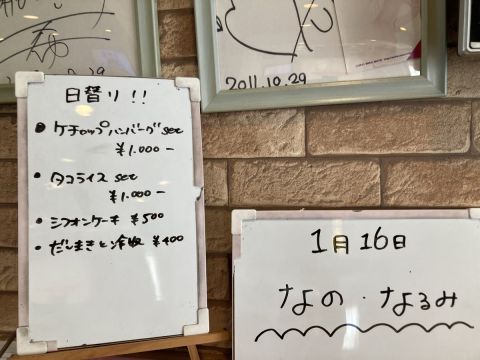 2011.10.29
日替り!!
• ケチャップハンバーグ set
¥1.000-
• タコライス set
¥1.000-
• シフォンケーキ ¥500
• だしまきと冷奴 ¥400
1月16日
なの・なるみ